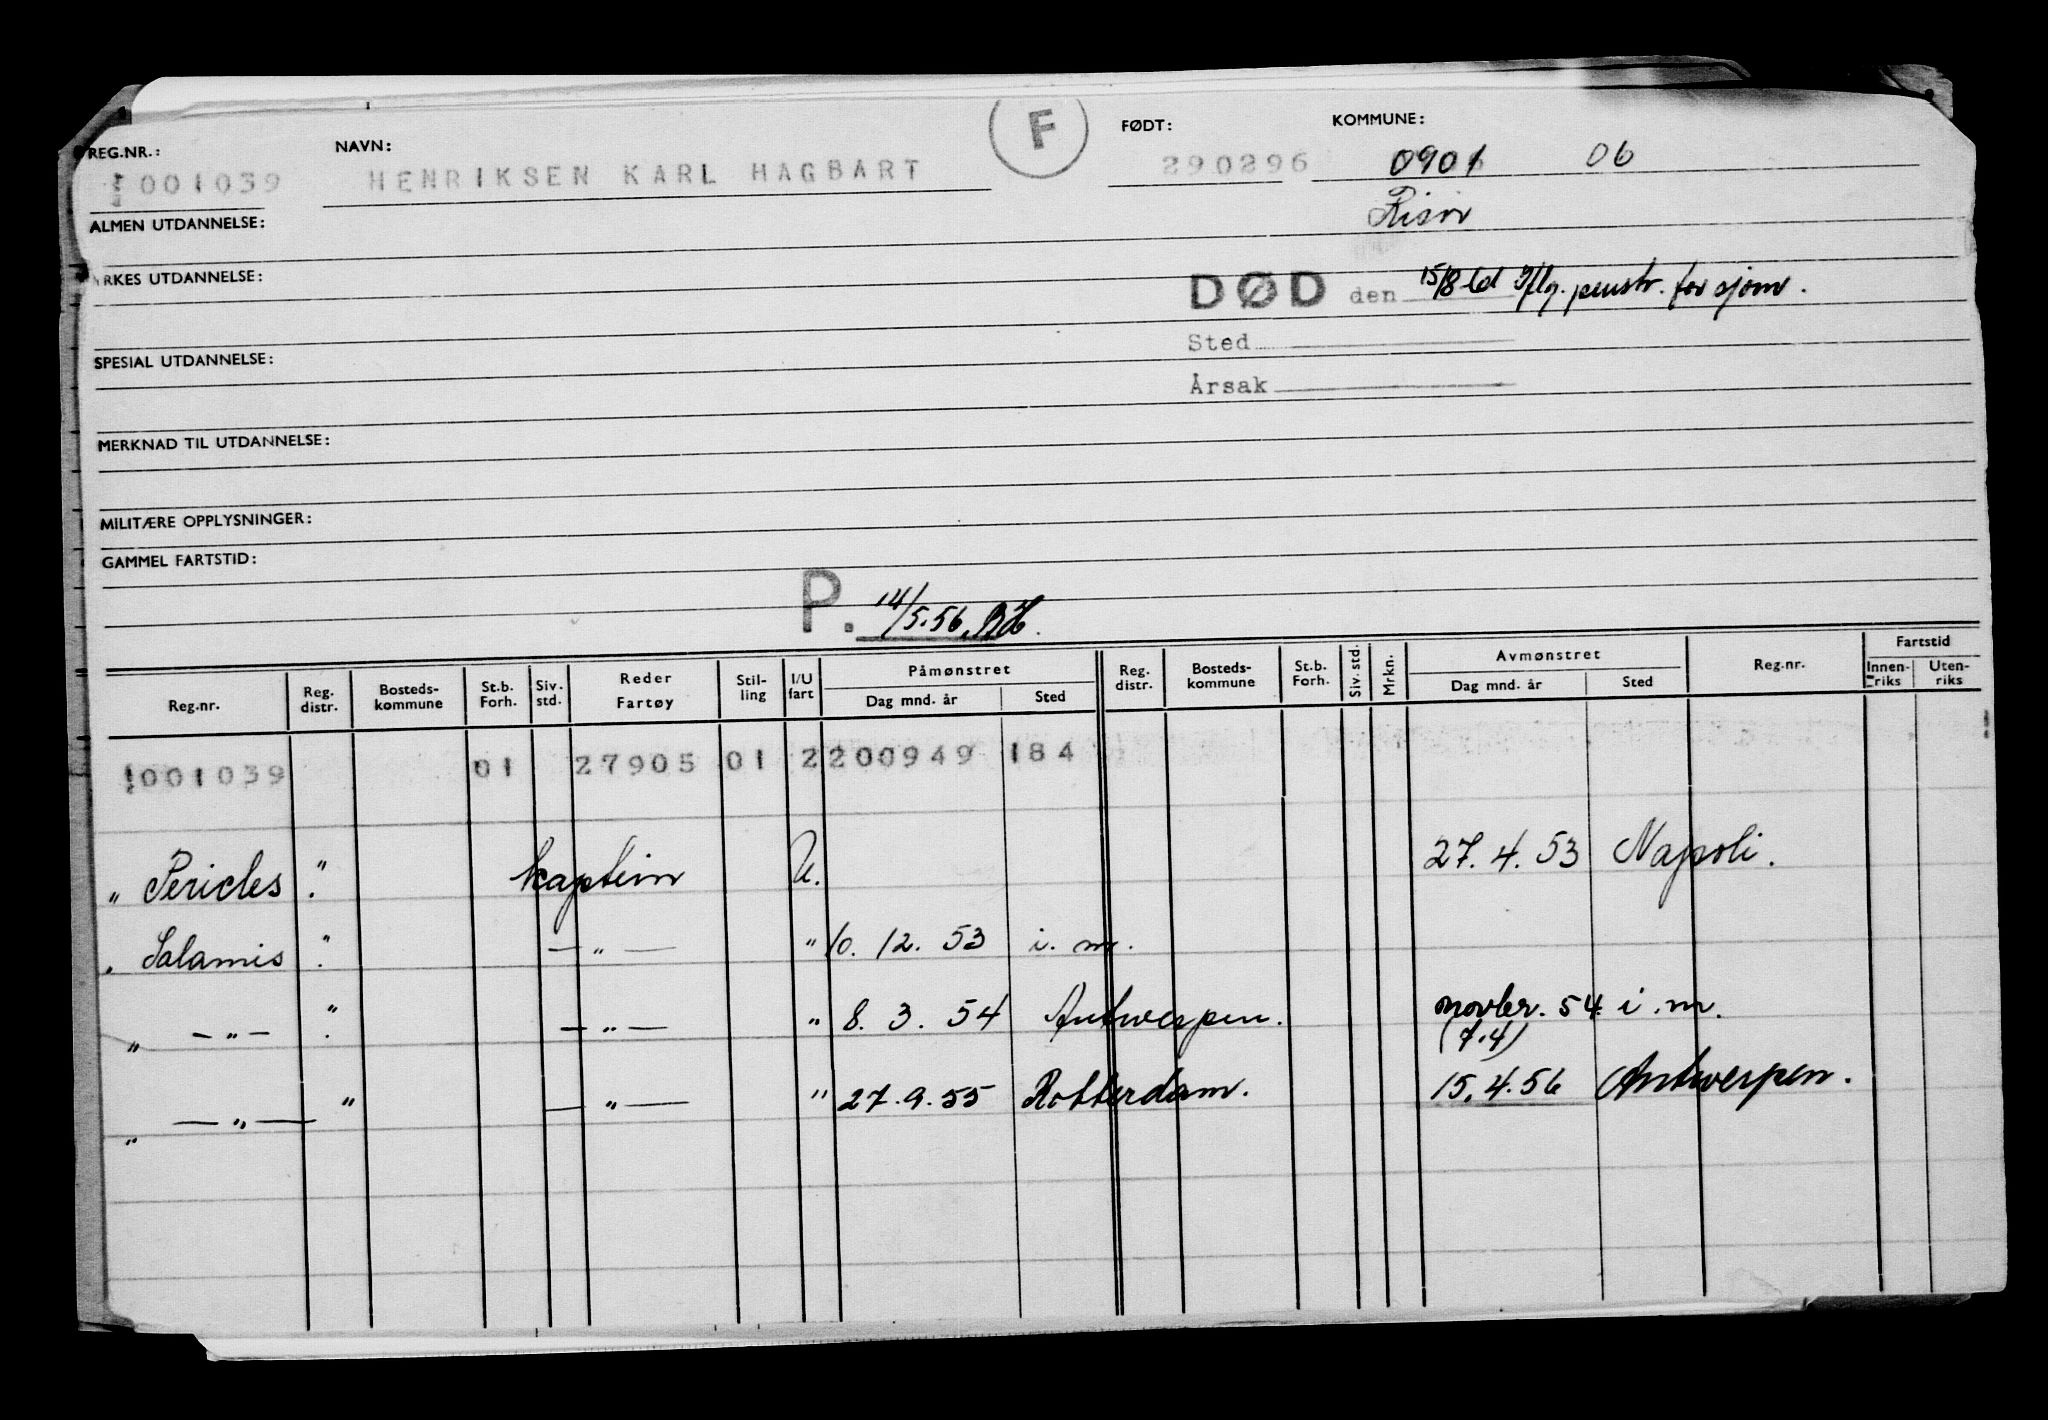 F
REG.NR.: NAVN: FØDT: KOMMUNE:
001039 HENRIKSEN KARL HAGBART 290296 0901 06
Risør
ALMEN UTDANNELSE:
RKES UTDANNELSE:
DØD den 15/8 Iflg. penstr. for sjøm.
Sted
SPESIAL UTDANNELSE:
Årsak
MERKNAD TIL UTDANNELSE:
MILITÆRE OPPLYSNINGER:
GAMMEL FARTSTID:
P. 14/5.56.
Reg.nr. Reg. distr. Bosteds- kommune St.b. Forh. Siv. std. Reder Fartøy Stil- ling I/U fart Påmønstret Dag mnd. år Sted Reg. distr. Bosteds- kommune St.b. Forh. Siv. std. Mrkn. Avmønstret Dag mnd. år Sted Reg.nr. Fartstid Innen- riks Uten- riks
001039 01 27905 01 2 200949 184
" Pericles " kaptein U. 27.4.53 Napoli.
" Salamis " — " — " 10. 12. 53 i. m.
" — " — " — " — " 8. 3. 54 Antwerpen. novber. 54 i. m.
(7.4)
" — " — " — " — " 27.9.55 Rotterdam. 15.4.56 Antwerpen.